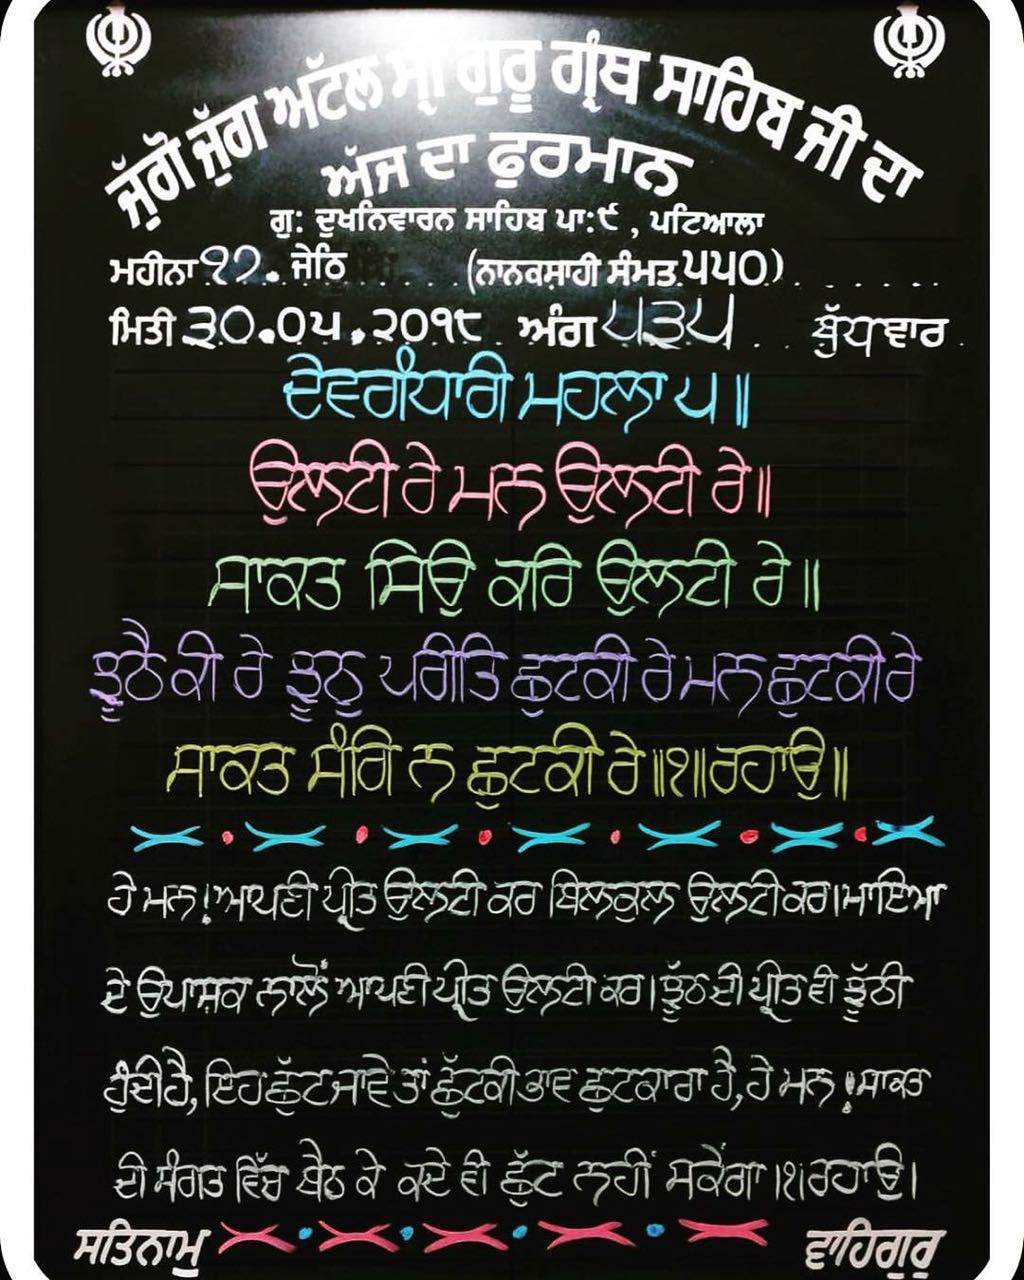 ਜੁੱਗੋ ਜੁੱਗ ਅਟੱਲ ਸ੍ਰੀ ਗੁਰੂ ਗ੍ਰੰਥ ਸਾਹਿਬ ਜੀ ਦਾ
ਅੱਜ ਦਾ ਫੁਰਮਾਨ
ਗੁ: ਦੁਖਨਿਵਾਰਨ ਸਾਹਿਬ ਪਾ:੯, ਪਟਿਆਲਾ
ਮਹੀਨਾ ੧੭. ਜੇਠਿ (ਨਾਨਕਸ਼ਾਹੀ ਸੰਮਤ ੫੫੦)
ਮਿਤੀ ੩੦.੦੫.੨੦੧੮ ਅੰਗ ੫੩੫ ਬੁੱਧਵਾਰ
ਦੇਵਗੰਧਾਰੀ ਮਹਲਾ ੫॥
ਉਲਟੀ ਰੇ ਮਨ ਉਲਟੀ ਰੇ॥
ਸਾਕਤ ਸਿਉ ਕਰਿ ਉਲਟੀ ਰੇ॥
ਝੂਠੈ ਕੀ ਰੇ ਝੂਠੁ ਪਰੀਤਿ ਛੁਟਕੀ ਰੇ ਮਨ ਛੁਟਕੀ ਰੇ
ਸਾਕਤ ਸੰਗਿ ਨ ਛੁਟਕੀ ਰੇ॥੧॥ਰਹਾਉ॥
ਹੇ ਮਨ! ਆਪਣੀ ਪ੍ਰੀਤ ਉਲਟੀ ਕਰ ਬਿਲਕੁਲ ਉਲਟੀ ਕਰ।ਮਾਇਆ
ਦੇ ਉਪਾਸ਼ਕ ਨਾਲੋਂ ਆਪਣੀ ਪ੍ਰੀਤ ਉਲਟੀ ਕਰ।ਝੂੱਠ ਦੀ ਪ੍ਰੀਤ ਵੀ ਝੂੱਠੀ
ਹੁੰਦੀ ਹੈ, ਇਹ ਛੁੱਟ ਜਾਵੇ ਤਾਂ ਛੁੱਟਕੀ ਭਾਵ ਛੁਟਕਾਰਾ ਹੈ, ਹੇ ਮਨ! ਸਾਕਤ
ਦੀ ਸੰਗਤ ਵਿੱਚ ਬੈਠ ਕੇ ਕਦੇ ਵੀ ਛੁੱਟ ਨਹੀਂ ਸਕੇਂਗਾ।੧।ਰਹਾਉ।
ਸਤਿਨਾਮੁ ਵਾਹਿਗੁਰੁ